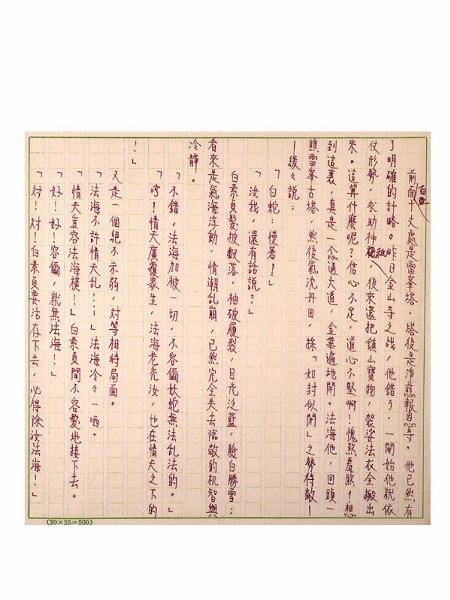 前面十丈處是雷峯塔，塔後是淨慈報恩寺。他已然有
了明確的計略。昨日金山寺之戰，他錯了，一開始他就依
仗形勢，求助神祇，後來還把鎮山寶物，袈裟法衣全搬出
來。這算什麼呢？信心不足，道心不堅啊！愧煞羞煞！想
到這裏，真是一念通大道，金葉遍地開。法海他，回頭一
瞧雷峯古塔，然後氣沈丹田，採「如封似閉」之勢待敵！
「白蛇！慢著！」
「汝我，還有話說？」
白素貞髮披釵落，袖破履裂，目光泛藍，臉白勝雪；
看來是氣海浮動，情潮乱崩，已然完全失去臨敵的机智與
冷靜。
「不錯，法海加被一切，不容倆妖蛇無法乱法的。」
「哼！情天廣覆眾生，法海老禿汝，也在情天之下的
！」
又是一個絕不示弱，對等相峙局面。
「法海不許情天乱！」法海冷々一哂。
「情天豈容法海橫！」白素貞間不容髮地接下去。
「好！好！容倆，就無法海！」
「对！对！白素貞要活存下去，必得除汝法海！」
（20×25＝500）